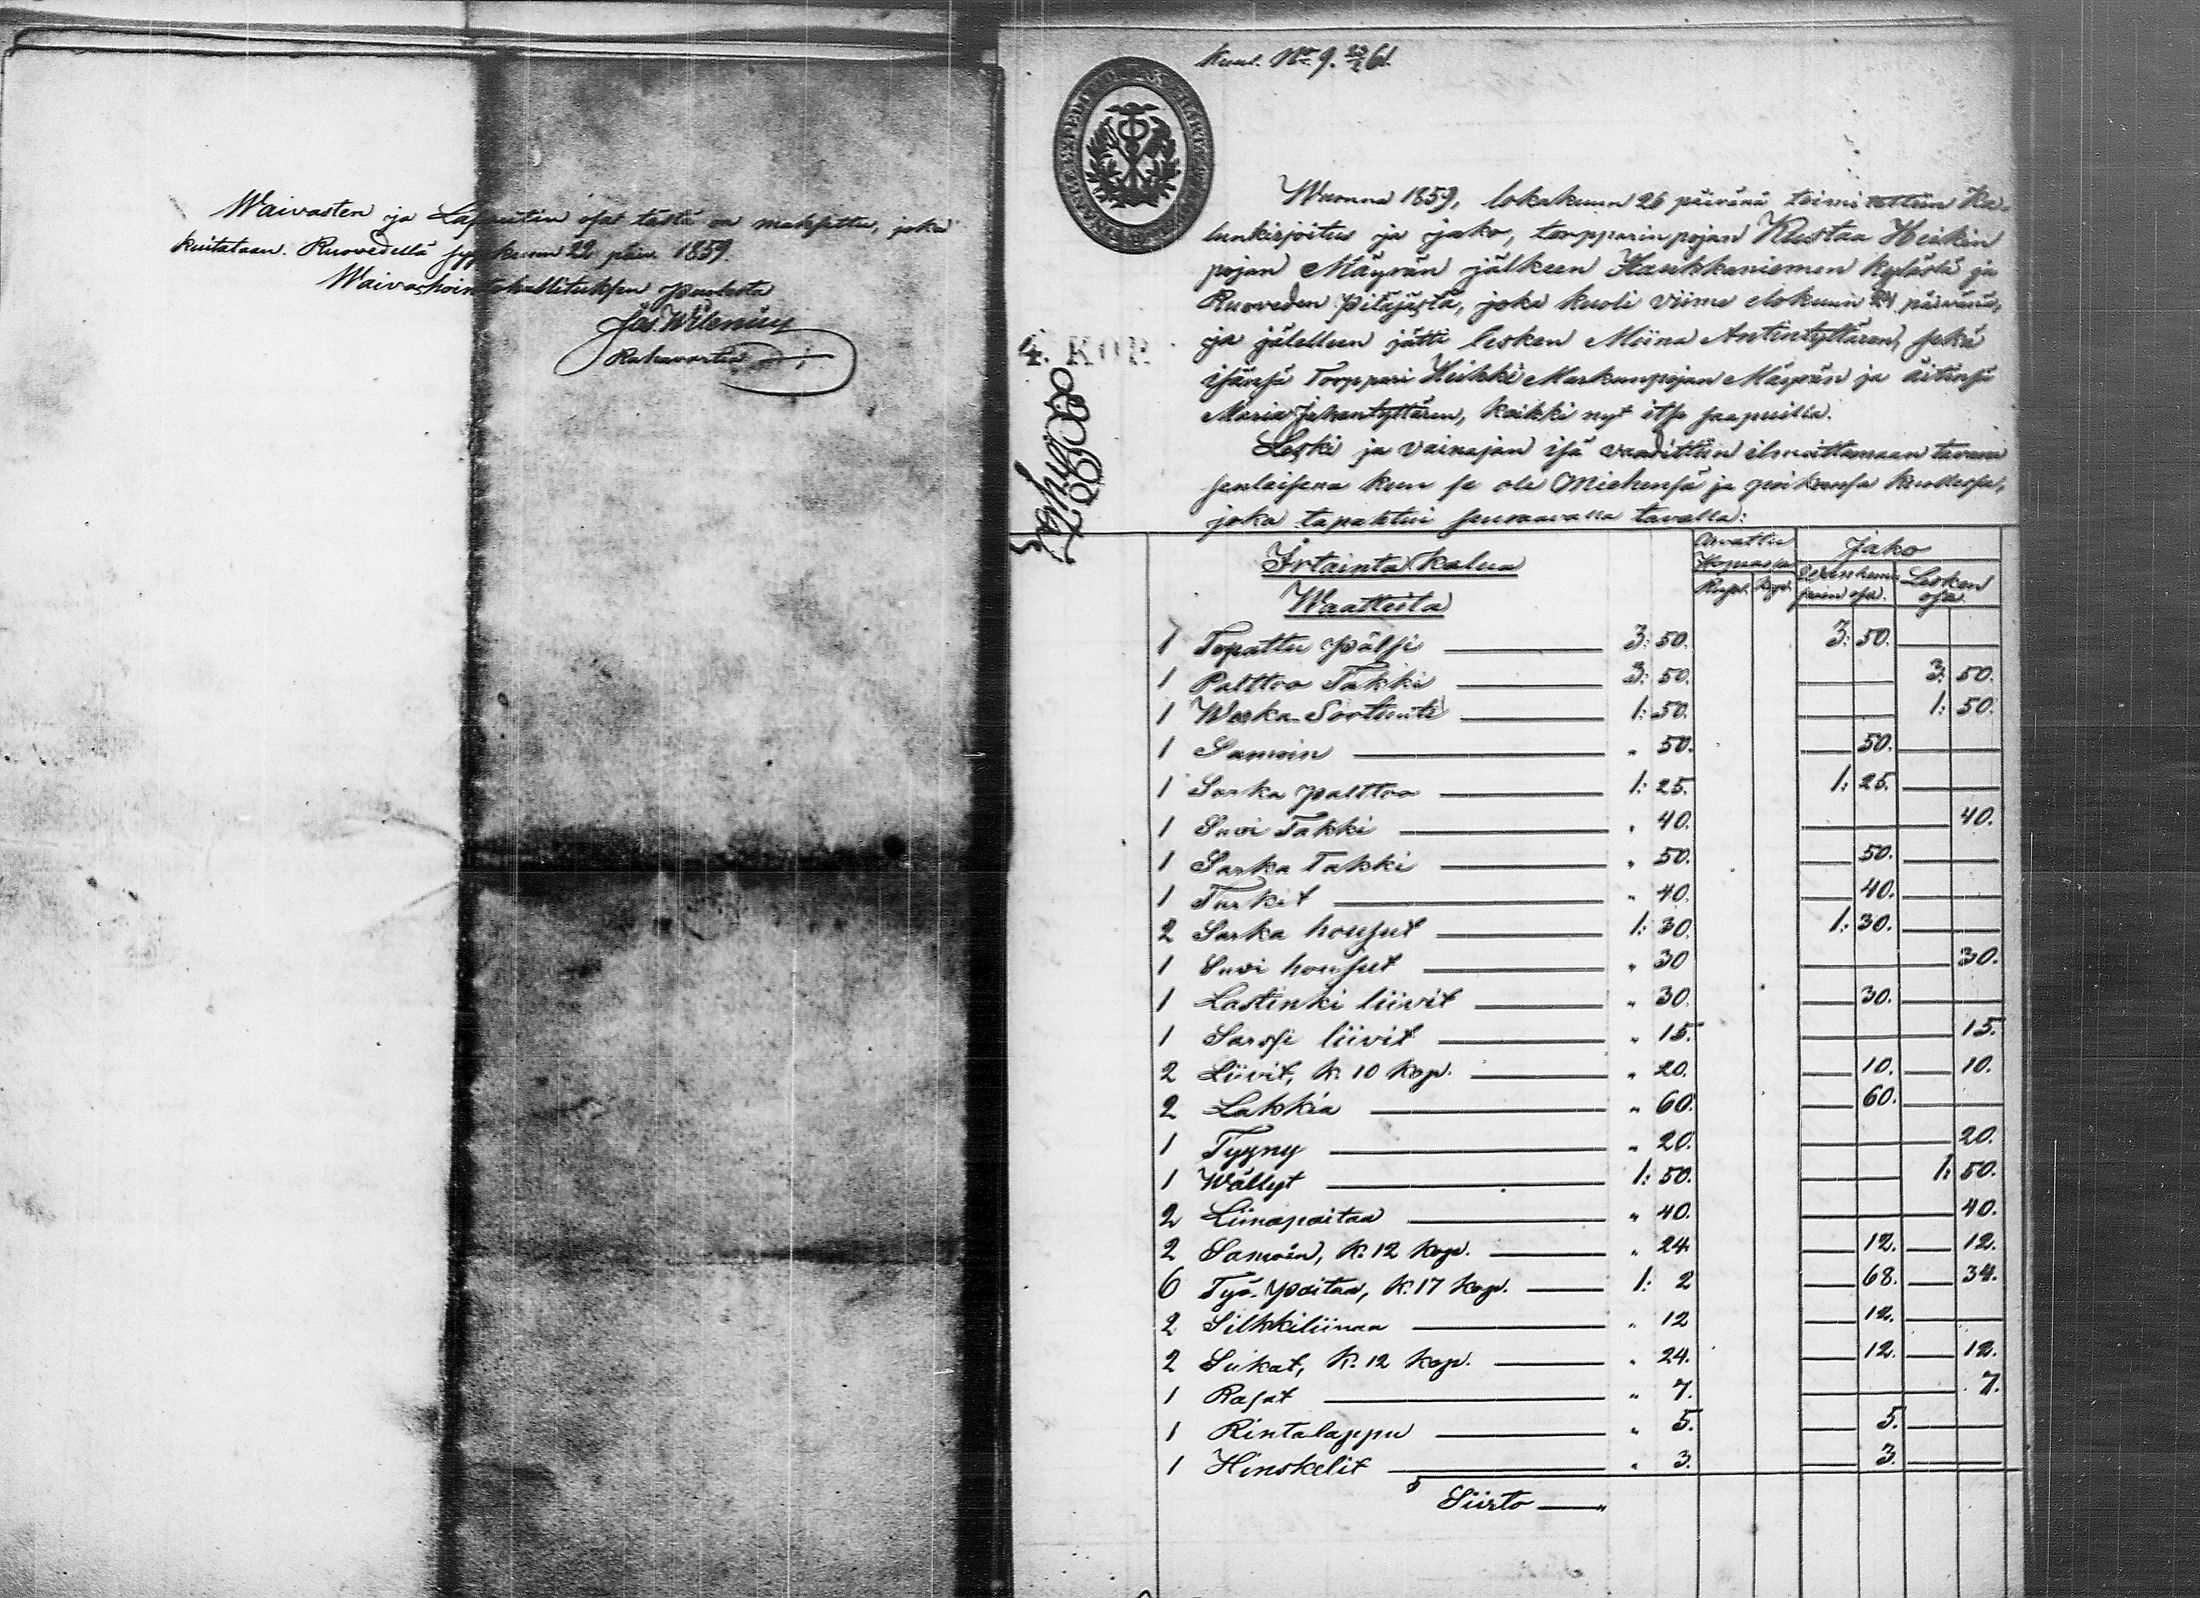 Waivasten ja Lasaretin osat tästä on maksettu, joka
kuitataan. Ruovedellä syyskuun 22 päiv. 1859.
Waivashointohallituksen puolesta
Jos. Wilenius
Rahavartia
Kuul. No 9. 61.
Wuonna 1859, lokakuun 26 päivänä toimitettiin Ka-
lunkirjoitus ja jako, torpparinpojan Kustaa Heikin
pojan Mäyrän jälkeen Haukkaniemen kylästä ja
Ruoveden pitäjästä, joka kuoli viime elokuun 24 päivänä,
ja jälelleen jätti lesken Miina Antintyttären, sekä
isänsä Torppari Heikki Markunpojan Mäyrän ja äitinsä
Maria Juhantyttären, kaikki nyt itse saapuilla.
Leski ja vainajan isä vaadittiin ilmoittamaan tavara
senlaisena kun se oli Miehensä ja poikansa kuollessa,
joka tapahtui seuraavalla tavalla:
4. KOP
Irtainta kalua
Waatteita
Arvattu Hopeassa
Rupl. Kop.
Jako
Wanhempain osa.
Lesken osa.
1 Topattu pälsi 3: 50. 3: 50.
1 Palttoo Takki 3: 50. 3: 50.
1 Werka Sortuuti 1: 50. 1: 50.
1 Samoin " 50. 50.
1 Sarka palttoo 1: 25. 1: 25.
1 Suvi Takki " 40. 40.
1 Sarka Takki " 50. 50.
1 Turkit " 40. 40.
2 Sarka housut 1: 30. 1: 30.
1 Suvi housut " 30 30.
1 Lastinki liivit " 30. 30.
1 Sarssi liivit " 15. 15.
2 Liivit, k. 10 kop. " 20. 10. 10.
2 Lakkia " 60. 60.
1 Tyyny " 20. 20.
1 Wällyt 1: 50. 1: 50.
2 Liinapaitaa " 40. 40.
2 Samoin, k. 12 kop. " 24. 12. 12.
6 Työ-paitaa, k. 17 kop. 1: 2 68. 34.
2 Silkkiliinaa " 12 12.
2 Sukat, k. 12 kop. " 24. 12. 12.
1 Rasat " 7. 7.
1 Rintalappu " 5. 5.
1 Hinskelit " 3. 3.
Siirto "